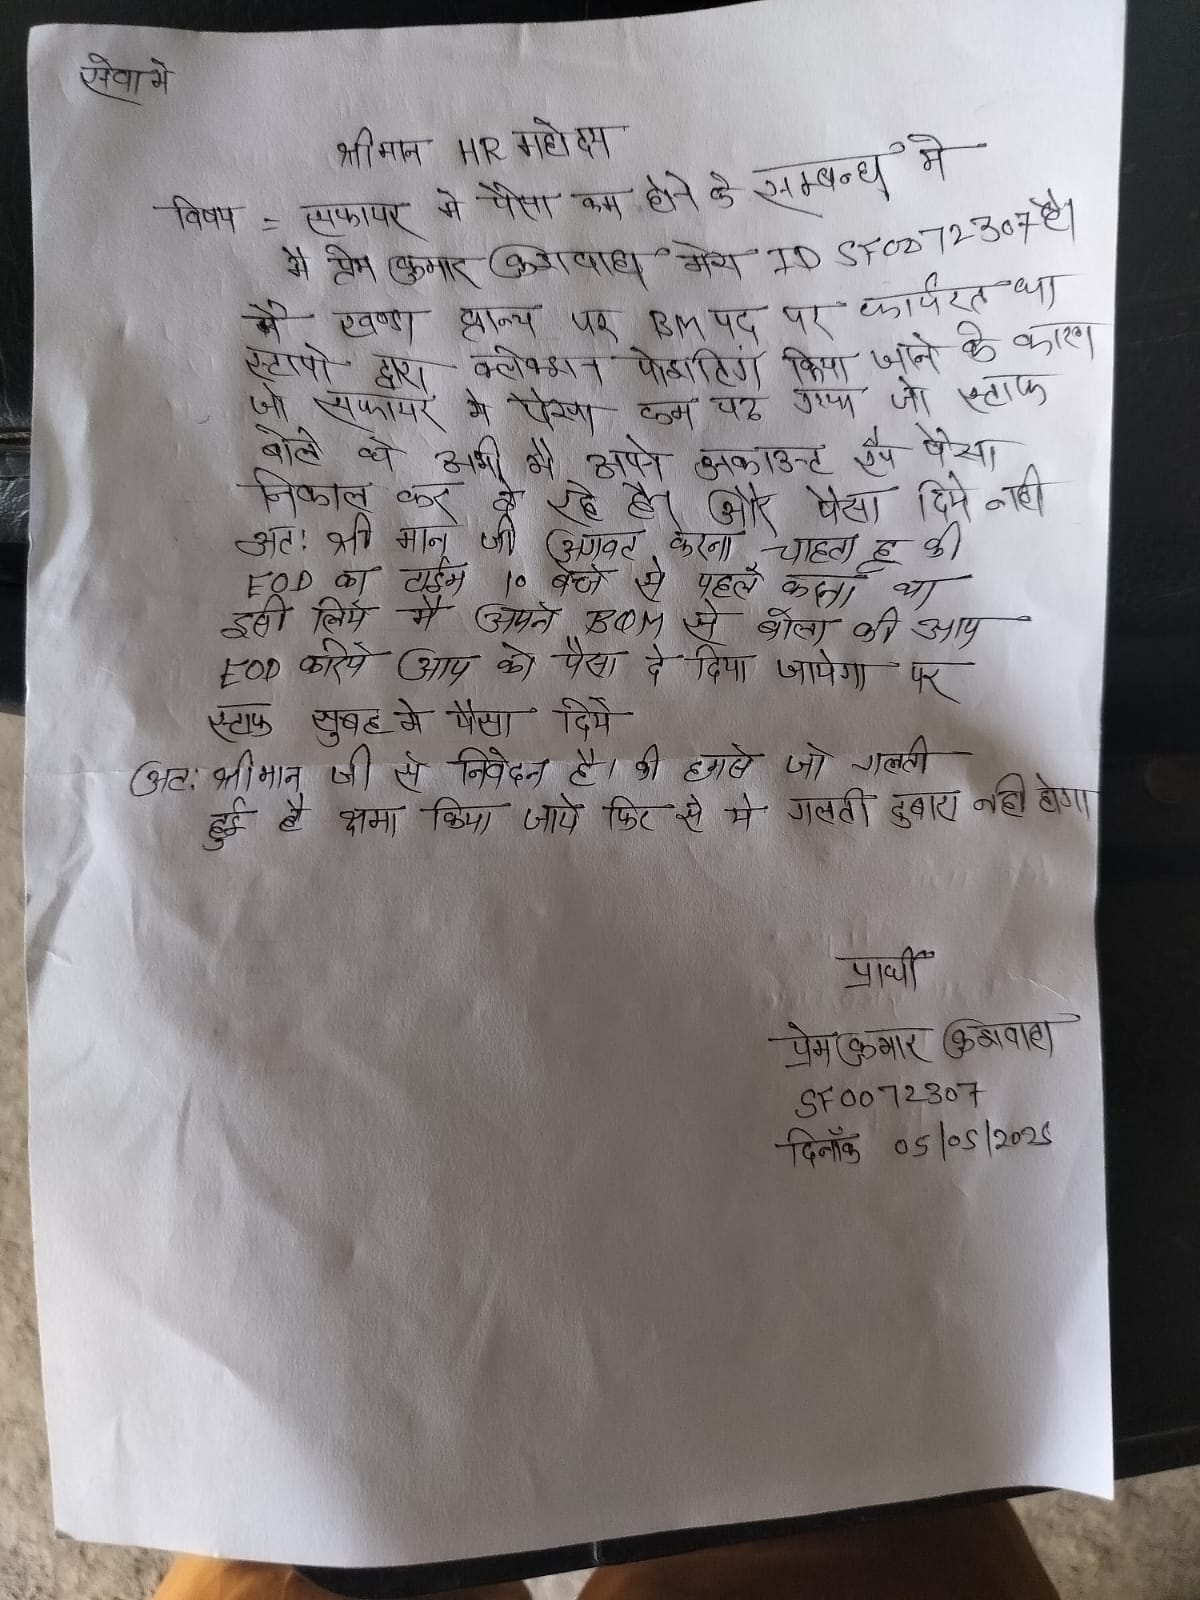 सेवा मे
श्रीमान HR महोदय
विषय = सफायर मे पैसा कम होने के सम्बन्ध मे
मै प्रेम कुमार कुशवाहा मेरा ID SF0072307 है।
मै खण्डा ब्रान्च पर BM पद पर कार्यरत था
स्टापो द्वारा क्लेक्शन पोस्टिंग किया जाने के कारण
जो सफायर मे पैसा कम पढ गया जो स्टाफ
बोले थे अभी मै अपने अकाउन्ट से पैसा
निकाल कर दे रहे है। और पैसा दिये नही
अत: श्री मान जी अगवत करना चाहता हू की
EOD का टाईम 10 बजे से पहले करना था
इसी लिये मै अपने BOM से बोला की आप
EOD करिये आप को पैसा दे दिया जायेगा पर
स्टाफ सुबह मे पैसा दिये
अत: श्रीमान जी से निवेदन है। की हमसे जो गलती
हुई है क्षमा किया जाये फिर से ये गलती दुबारा नही होगा
प्रार्थी
प्रेम कुमार कुशवाहा
SF0072307
दिनाँक 05/05/2025